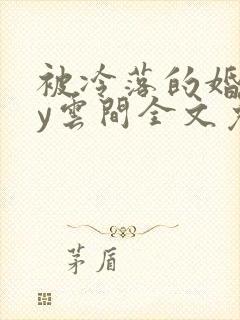 被冷落的婚
y雲間全文免
茅盾